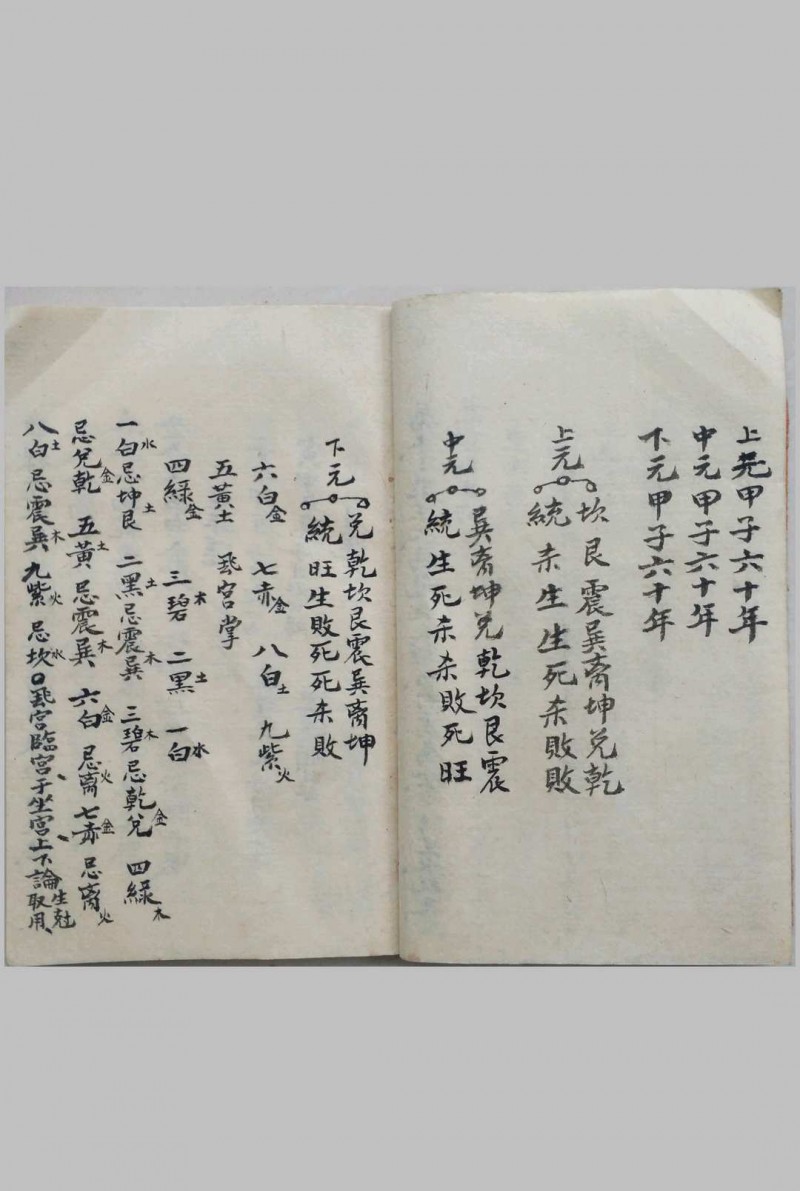 上元甲子六十年
中元甲子六十年
下元甲子六十年
坎艮震巽离坤兑乾
上元
統 杀生生死杀敗敗
巽离坤兑乾坎艮震
中元
統 生死杀杀敗死旺
兑乾坎艮震巽离坤
下元
統 旺生敗死死杀敗
六白金 七赤金 八白土 九紫火
五黄土 飛宮掌
四緑金 三碧木 二黑土 一白水
一白水忌坤艮土 二黑土忌震巽木 三碧木忌乾兑金 四緑木
忌兑乾金 五黄土忌震巽木 六白金忌离火 七赤金忌离火
八白土忌震巽木 九紫火忌坎水○飛宮臨宮于坐宮上下論生尅取用